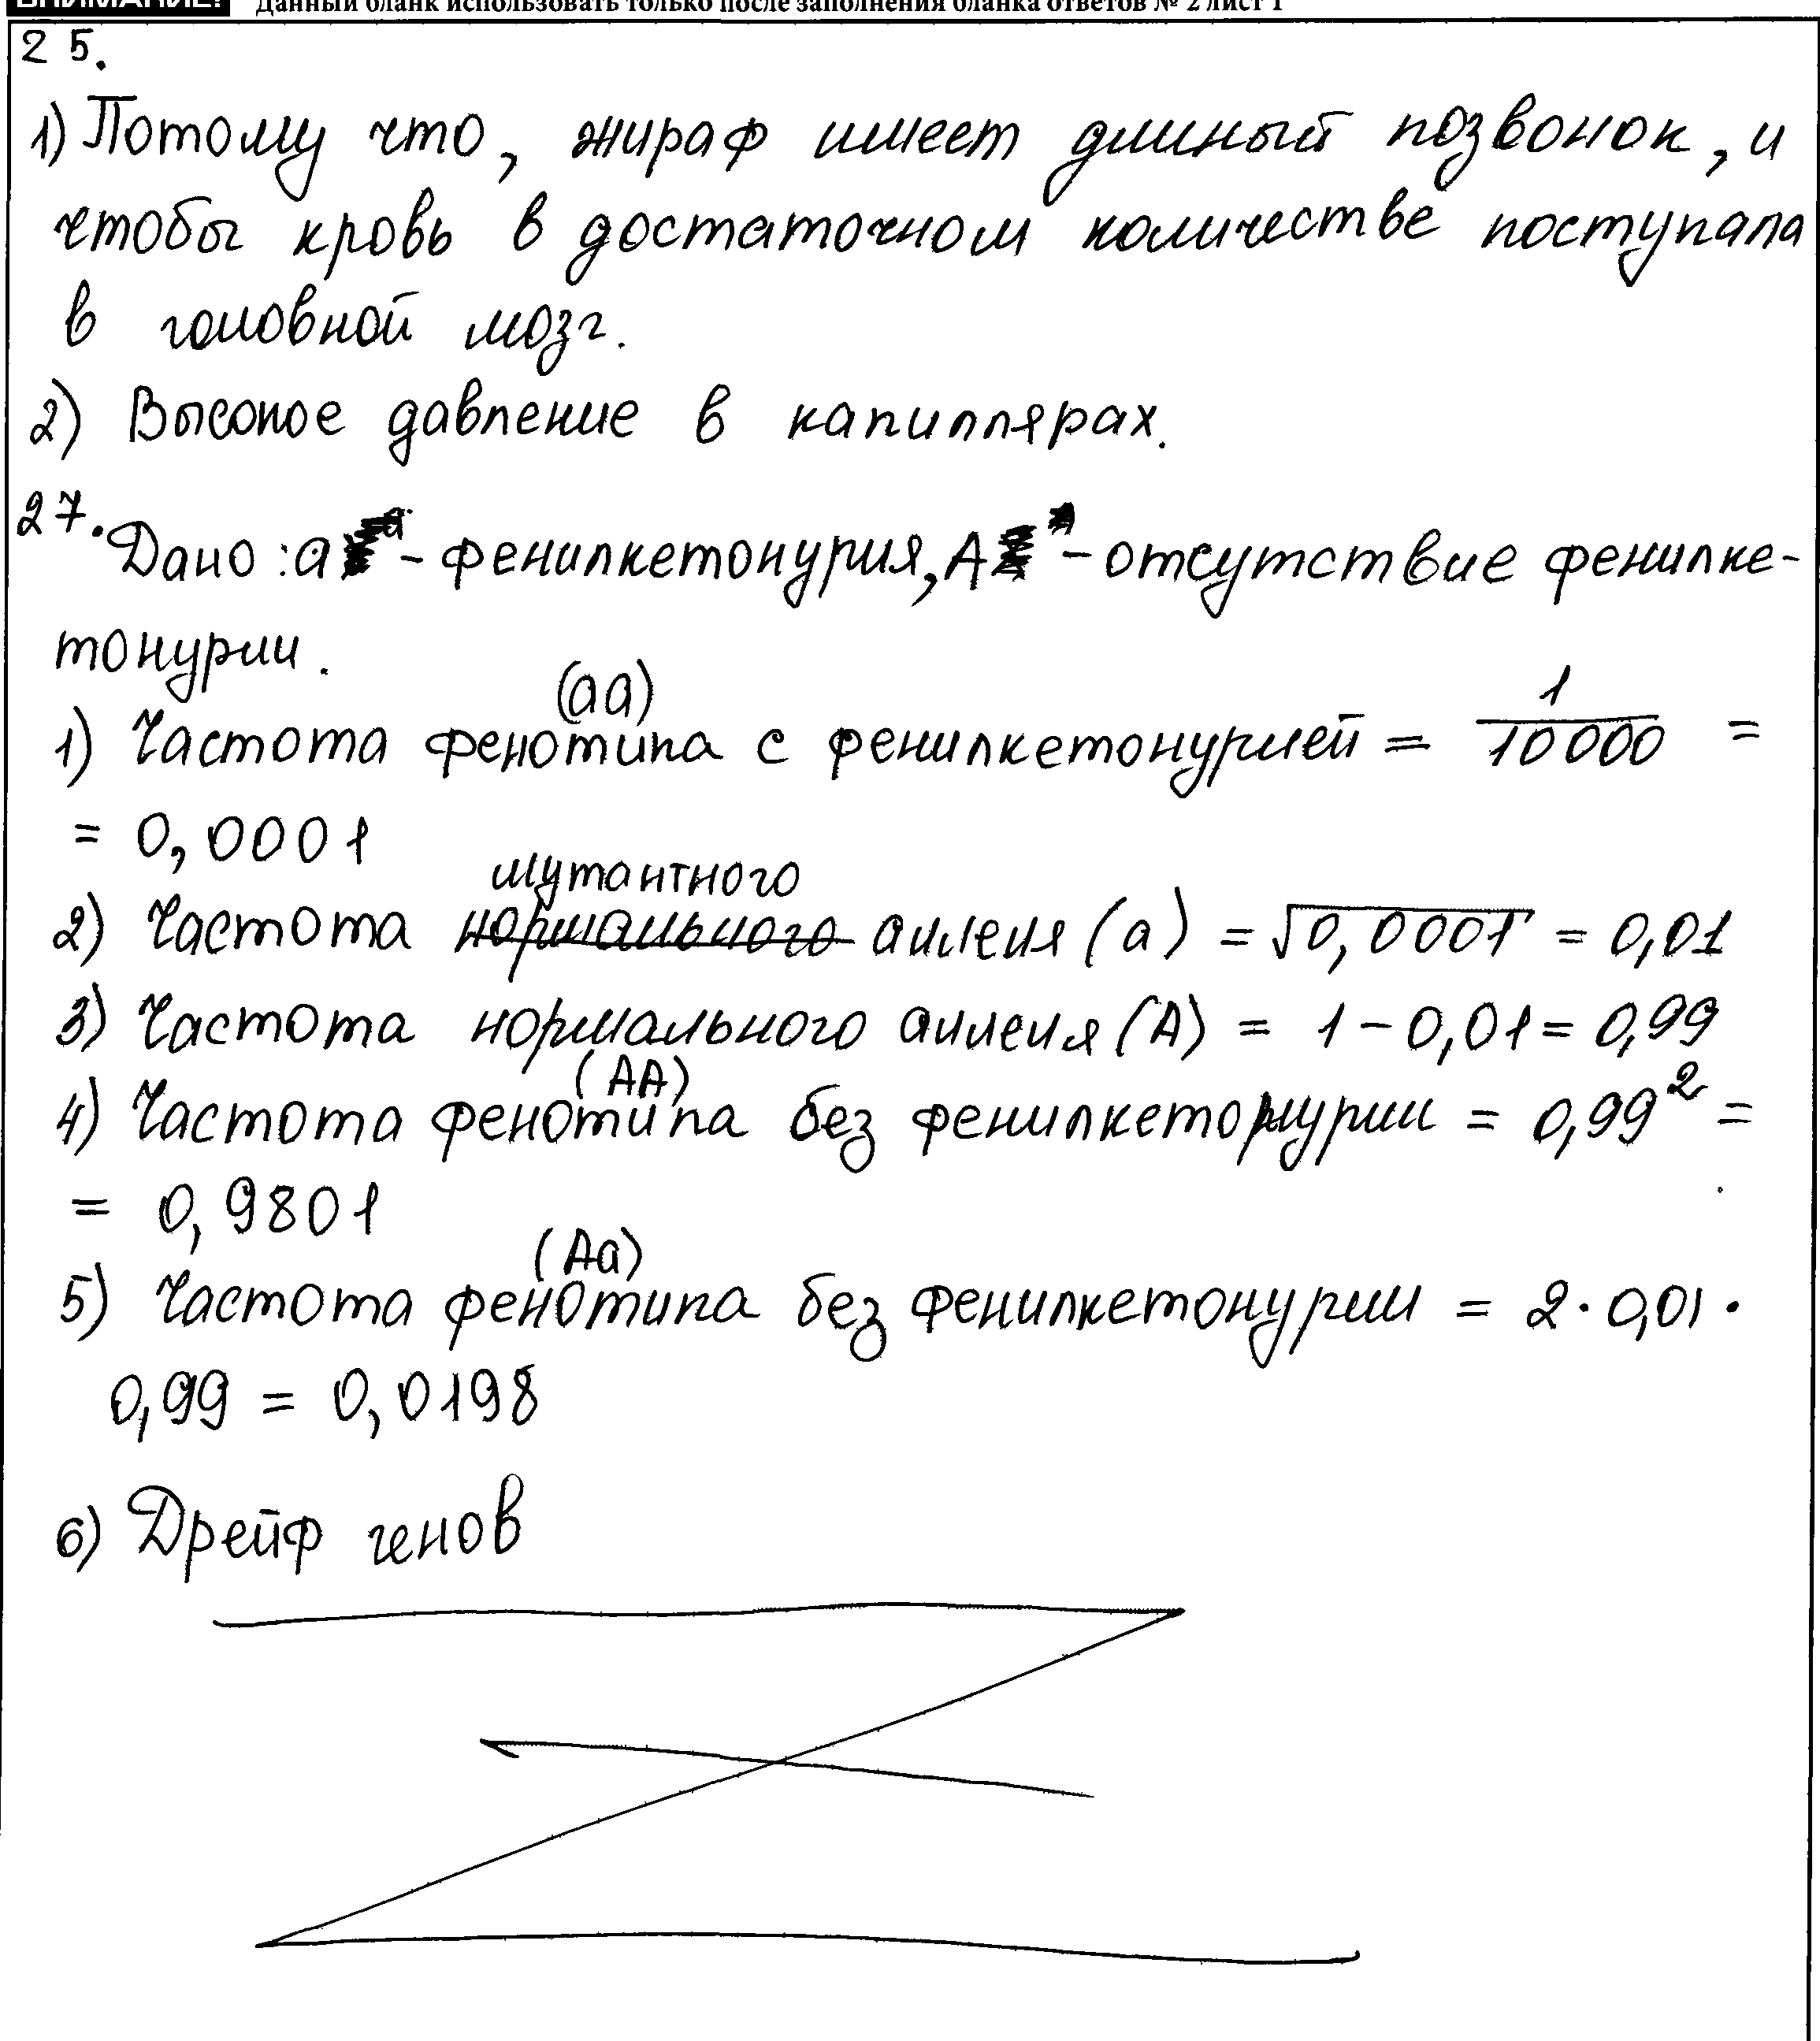 ВНИМАНИЕ! Данный бланк использовать только после заполнения бланка ответов № 2 лист 1
25.
1) Потому что, жираф имеет длиный позвонок, и
чтобы кровь в достаточном количестве поступала
в головной мозг.
2) Высокое давление в капиллярах.
27. Дано: а - фенилкетонурия, А - отсутствие фенилке-
тонурии.
(аа)
1) Частота фенотипа с фенилкетонурией = 1/10000 =
= 0,0001
мутантного
2) Частота нормального аллеля (а) = √0,0001 = 0,01
3) Частота нормального аллеля (А) = 1 - 0,01 = 0,99
(АА)
4) Частота фенотипа без фенилкетонурии = 0,99² =
= 0,9801
(Аа)
5) Частота фенотипа без фенилкетонурии = 2 · 0,01 ·
0,99 = 0,0198
6) Дрейф генов